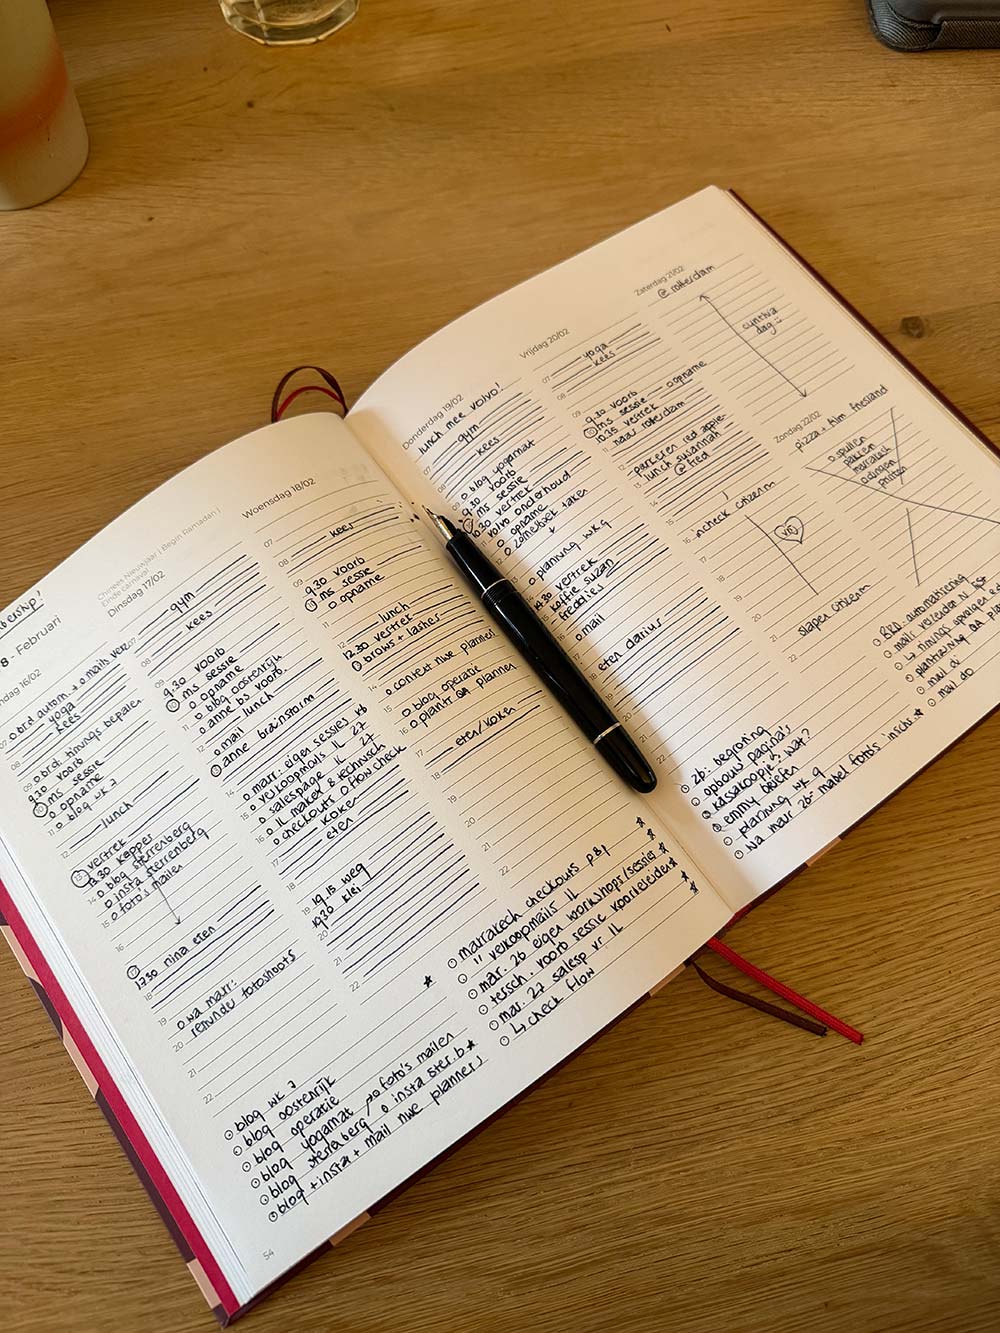 8 - Februari
16/02
o brd autom. + o mails verz.
yoga
kees
o brd: timings bepalen
9.30 voorb
ms sessie
o opname
o blog wk 7
lunch
vertrek
13.30 kapper
o blog sterrenberg
o insta sterrenberg
o foto's mailen
17.30 nina eten
o wa marr:
reminder fotoshoots
Chinees Nieuwjaar | Begin Ramadan |
Einde carnaval
Dinsdag 17/02
gym
kees
9.30 voorb
ms sessie
o opname
o blog oostenrijk
anne bs voorb.
o mail lunch
anne brainstorm
o marr. eigen sessies
o verkoopmails IL 27
o salespage IL 27
o IL maken & technisch
checkouts o flow check
koken
eten
19.15 weg
19.30 klei
Woensdag 18/02
kees
9.30 voorb
ms sessie
o opname
lunch
12.30 vertrek
brows + lashes
o content nwe planner
o blog operatie
o plantr QA plannen
eten/koken
o blog wk 7
o blog oostenrijk
o blog operatie
o blog yogamat
foto's mailen
o blog sterrenberg o insta ster.b*
o blog + insta + mail nwe planners
o marrakech checkouts
o " verkoopmails IL
o mar. 26 eigen workshops/sessies
o tersch. voorb sessie voorbeleiden
o mar. 27 salesp vr. IL
o ↳ check flow
54
Donderdag 19/02
lunch mee volvo!
gym
kees
o blog yogamat
9.30 voorb
ms sessie
10.30 vertrek
volvo onderhoud
o opname
+
o planning wk 9
14.30 vertrek
koffie suzan
freddies
o mail
eten darius
Vrijdag 20/02
yoga
kees
9.30 voorb
ms sessie o opname
10.35 vertrek
naar rotterdam
parkeren red apple
lunch susannah
@ fred
incheck citizenm
vrij
slapen citizenm
Zaterdag 21/02
@ rotterdam
cynthia
dag :)
Zondag 22/02
pizza + kim friesland
o spullen
pakken
marrakech
o dingen
printen
o 2b: begroting
o opbouw pagina's
o kassakoopje: wat?
o emmy brieven
o planning wk 9
o wa marr 2b: mabel foto's inschr.*
o BRD: automatisering
o mails verzenden NL
o ↳ timings opvolger
o planning QA
o mail di
o mail do